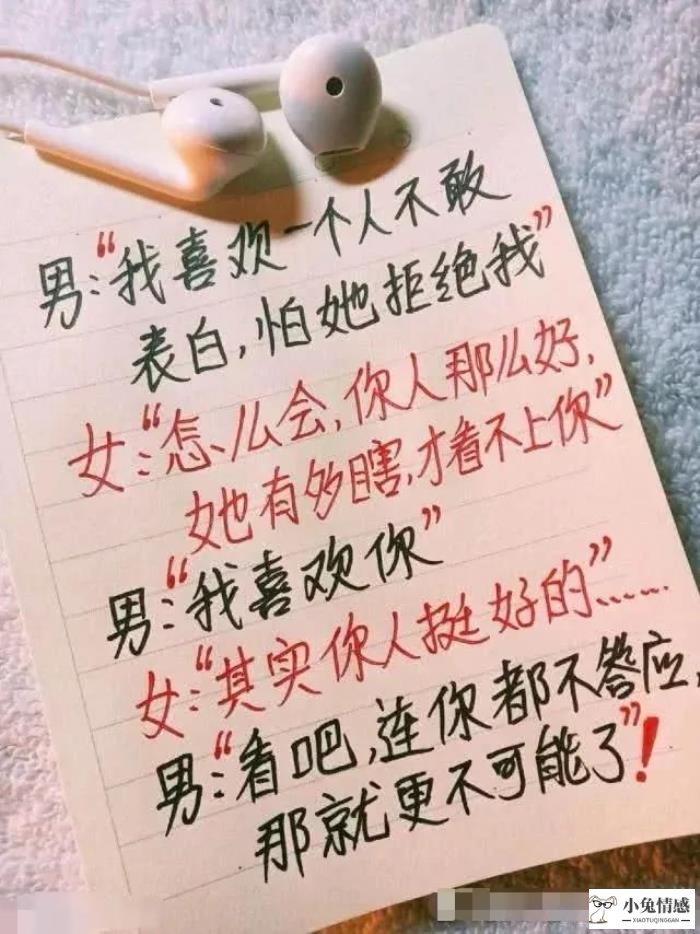 男:“我喜欢一个人不敢
表白,怕她拒绝我”
女:“怎么会,你人那么好,
她有多瞎,才看不上你”
男:“我喜欢你”
女:“其实你人挺好的”……
男:“看吧,连你都不答应,
那就更不可能了”!
小兔情感
XIAOTUQINGGAN